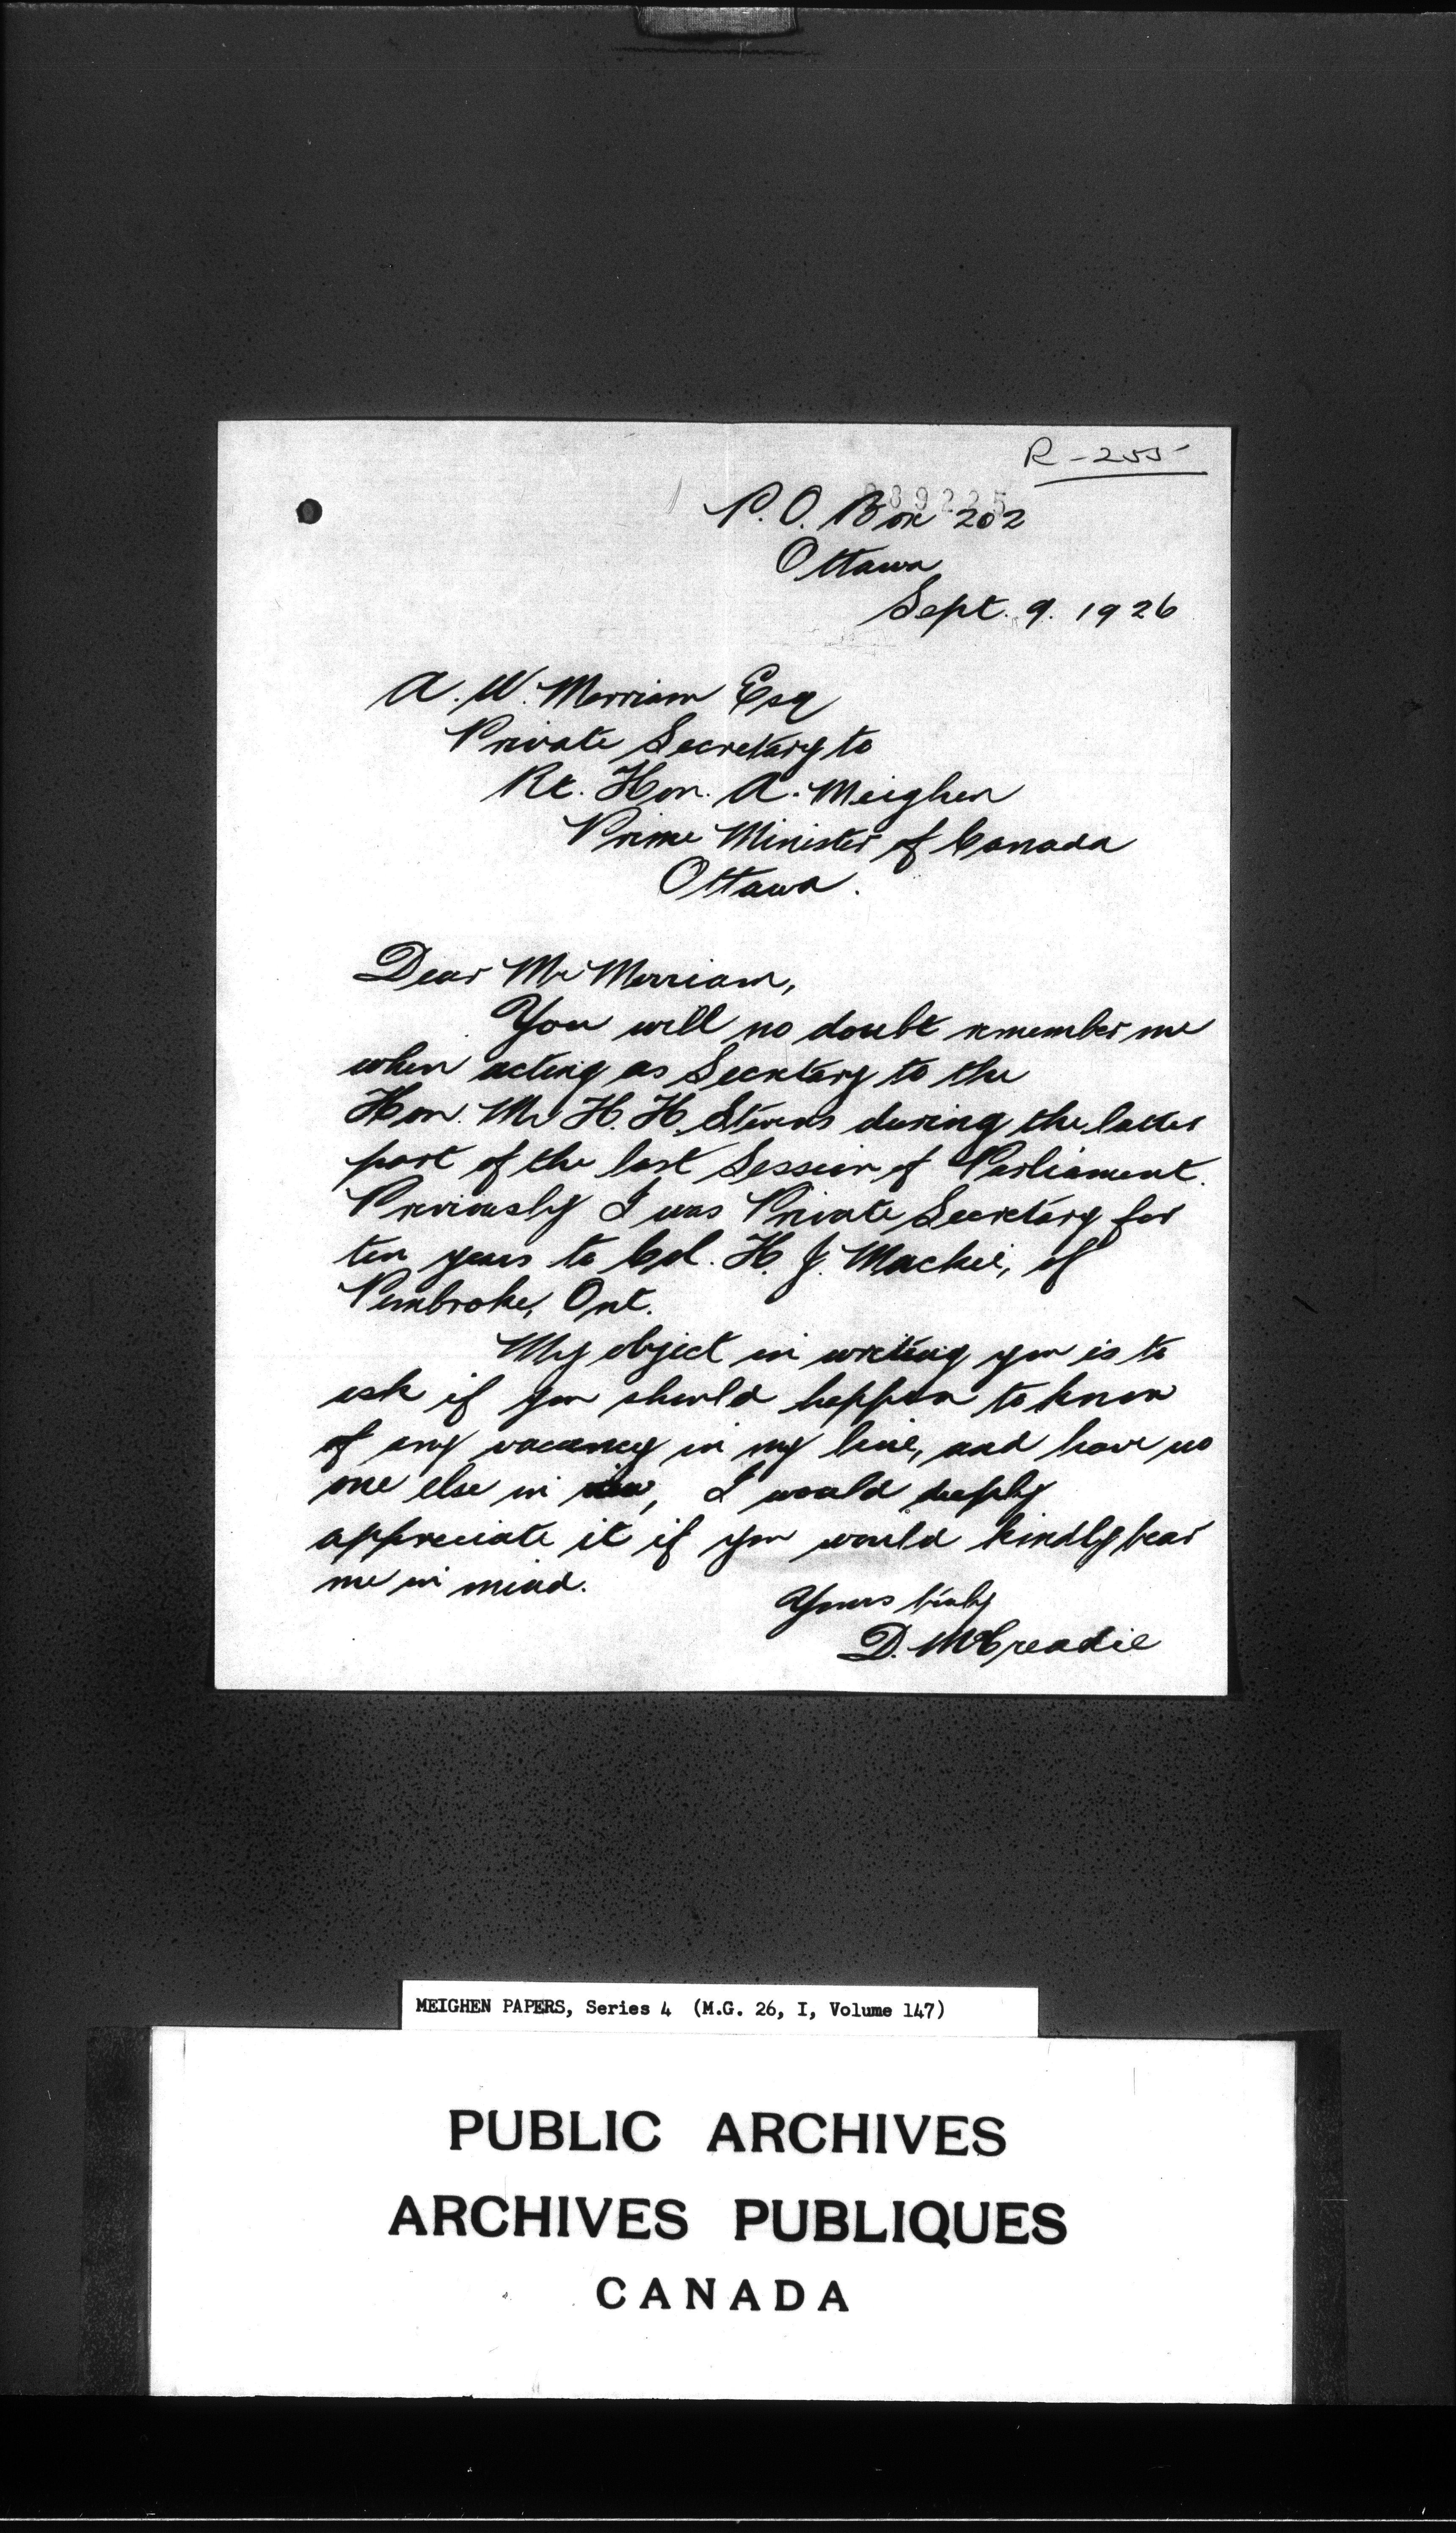 R-255
089225
P.O. Box 202
Ottawa
Sept. 9. 1926
A. W. Merriam Esq
Private Secretary to
Rt. Hon. A. Meighen
Prime Minister of Canada
Ottawa.
Dear Mr Merriam,
You will no doubt remember me
when acting as Secretary to the
Hon. Mr H. H. Stevens during the latter
part of the last Session of Parliament.
Previously I was Private Secretary for
ten years to Col. H. J. Mackie, of
Pembroke, Ont.
My object in writing you is to
ask if you should happen to know
of any vacancy in my line, and have no
one else in view, I would deeply
appreciate it if you would kindly bear
me in mind.
Yours truly
D. McCreadie
MEIGHEN PAPERS, Series 4 (M.G. 26, I, Volume 147)
PUBLIC ARCHIVES
ARCHIVES PUBLIQUES
CANADA